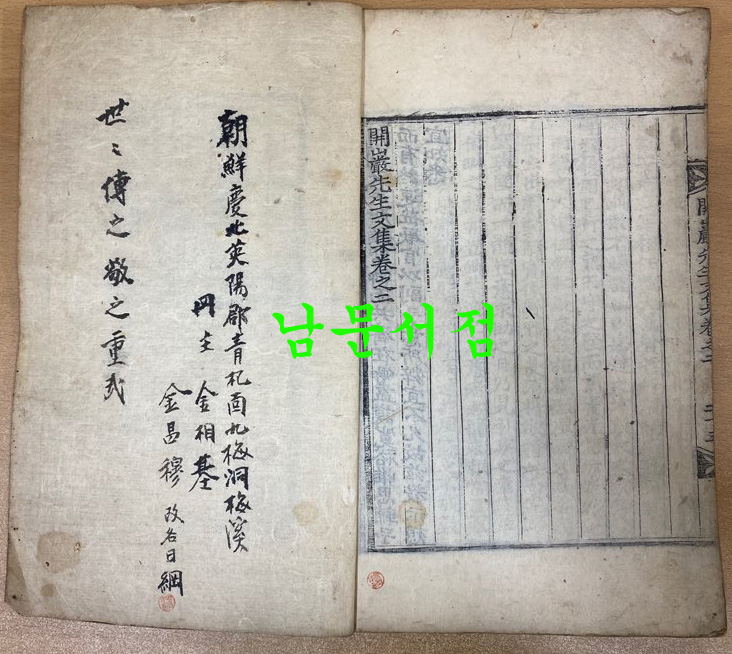 開巖先生文集卷之二
開巖先生文集卷之二
남문서점
朝鮮慶北英陽郡青杞面九梅洞梅溪
冊主 金相基
金昌穆 改名日綱
世々傳之敬之重哉